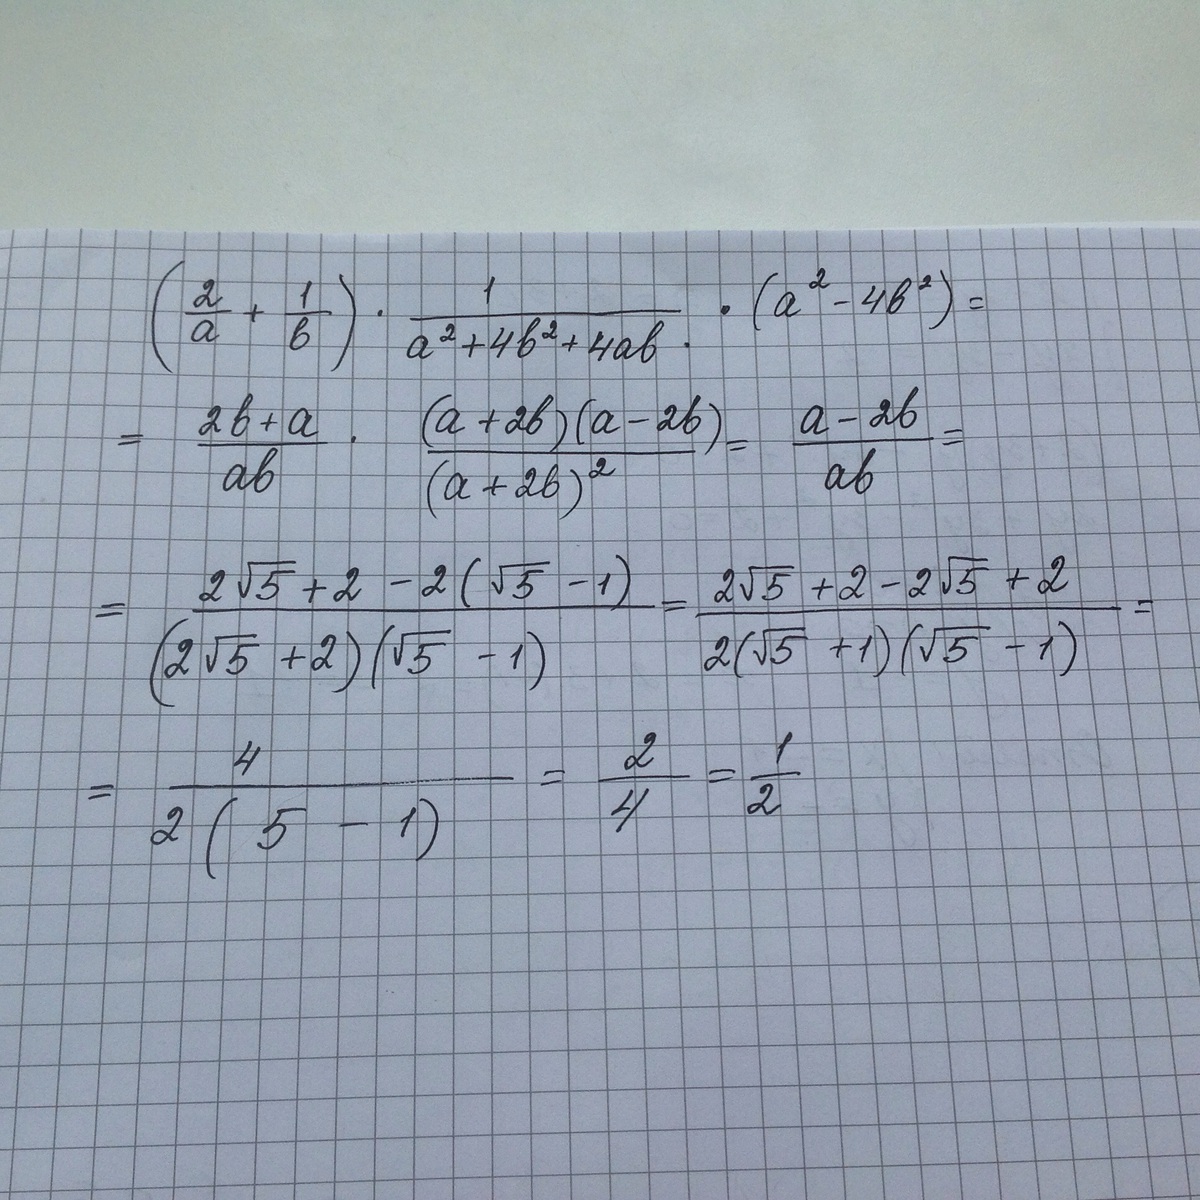 (2/a + 1/b) · 1/(a² + 4b² + 4ab) · (a² - 4b²) =
= (2b + a)/(ab) · ((a + 2b)(a - 2b))/((a + 2b)²) = (a - 2b)/(ab) =
= (2√5 + 2 - 2(√5 - 1))/((2√5 + 2)(√5 - 1)) = (2√5 + 2 - 2√5 + 2)/(2(√5 + 1)(√5 - 1)) =
= 4/(2(5 - 1)) = 2/4 = 1/2